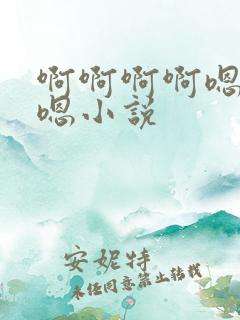 啊啊啊啊嗯
嗯小说
安妮特
未经同意禁止转载